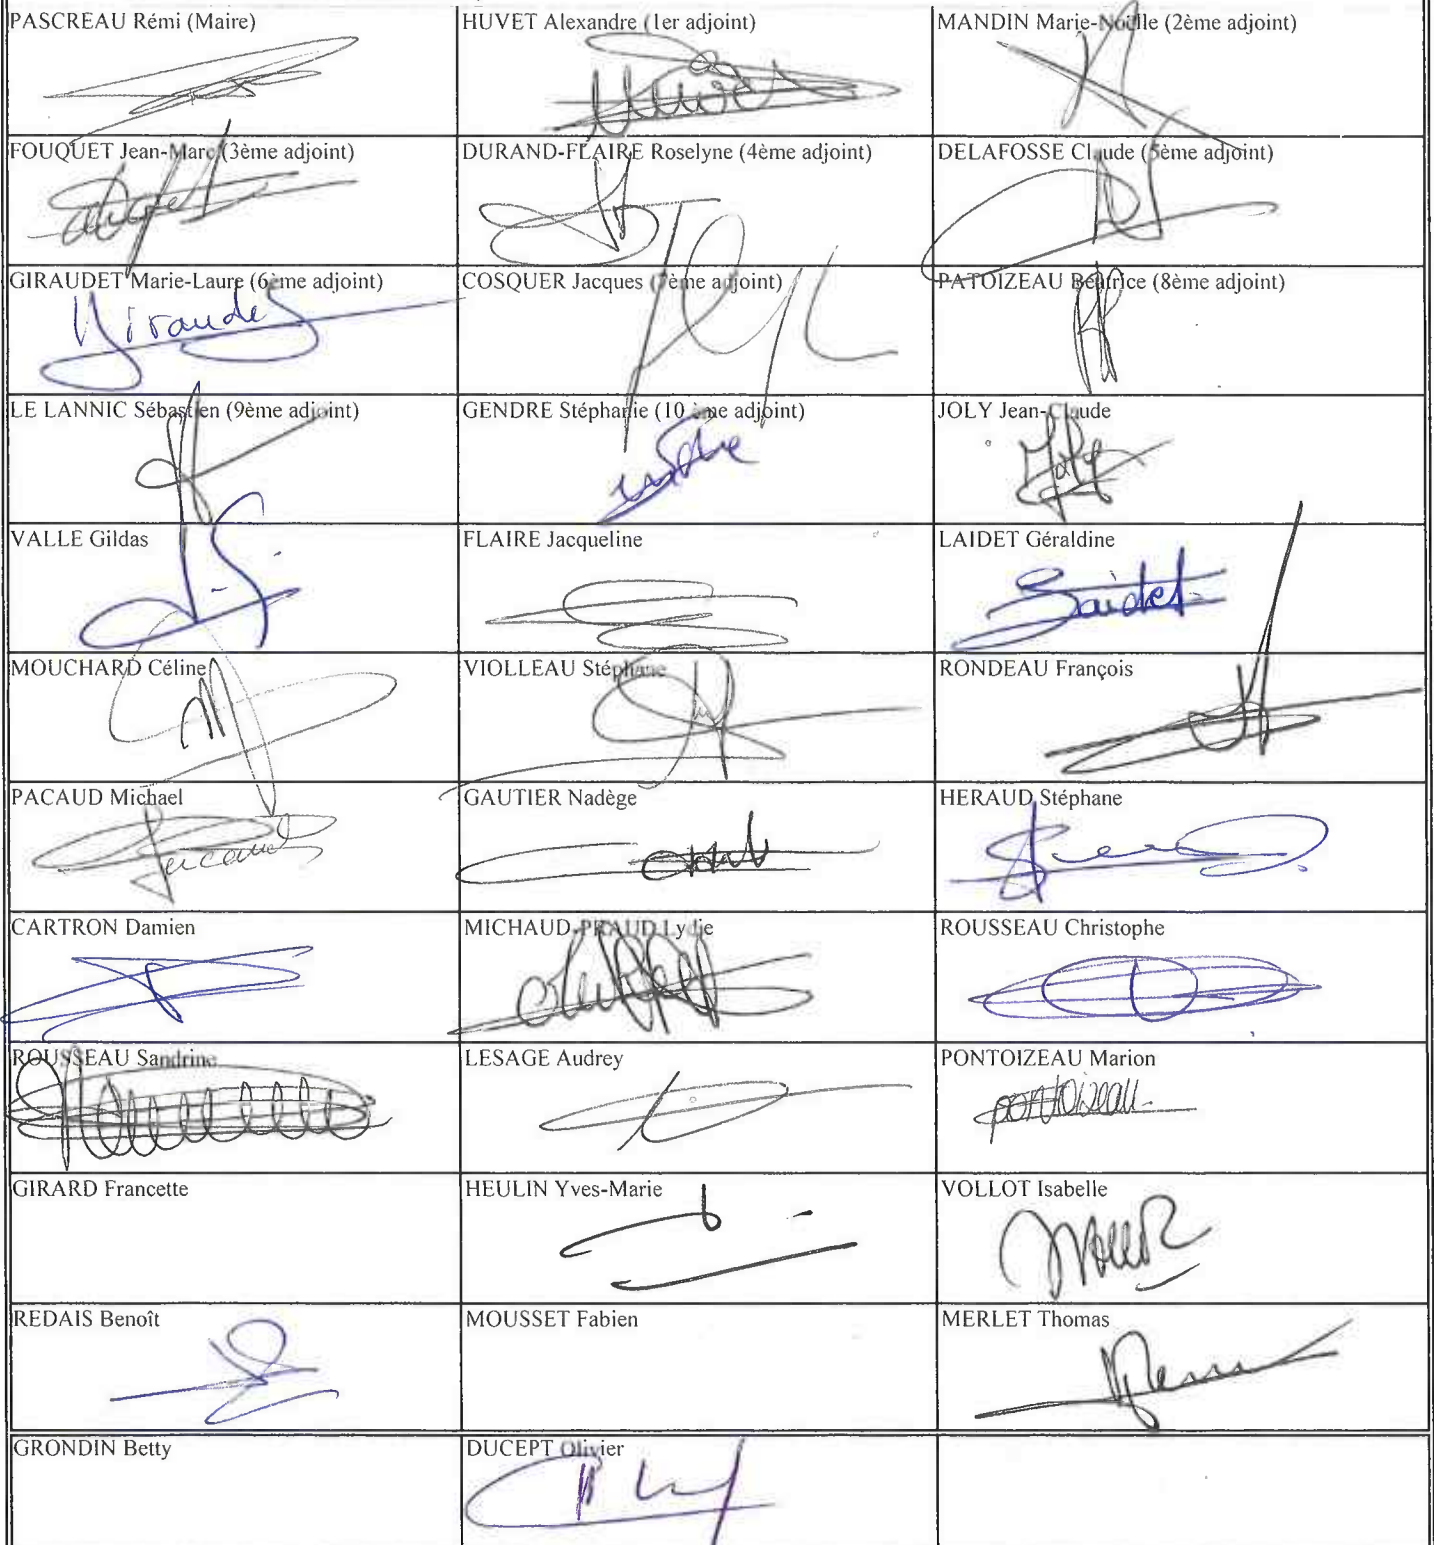 PASCREAU Rémi (Maire)
HUVET Alexandre (1er adjoint)
MANDIN Marie-Noëlle (2ème adjoint)
FOUQUET Jean-Marc (3ème adjoint)
DURAND-FLAIRE Roselyne (4ème adjoint)
DELAFOSSE Claude (5ème adjoint)
GIRAUDET Marie-Laure (6ème adjoint)
Giraudet
COSQUER Jacques (7ème adjoint)
PATOIZEAU Béatrice (8ème adjoint)
LE LANNIC Sébastien (9ème adjoint)
GENDRE Stéphanie (10 ème adjoint)
JOLY Jean-Claude
Joly
VALLE Gildas
FLAIRE Jacqueline
LAIDET Géraldine
Laidet
MOUCHARD Céline
VIOLLEAU Stéphane
RONDEAU François
PACAUD Michael
Pacaud
GAUTIER Nadège
HERAUD Stéphane
CARTRON Damien
MICHAUD-PRAUD Lydie
ROUSSEAU Christophe
ROUSSEAU Sandrine
LESAGE Audrey
PONTOIZEAU Marion
pontoizeau
GIRARD Francette
HEULIN Yves-Marie
VOLLOT Isabelle
REDAIS Benoît
MOUSSET Fabien
MERLET Thomas
GRONDIN Betty
DUCEPT Olivier